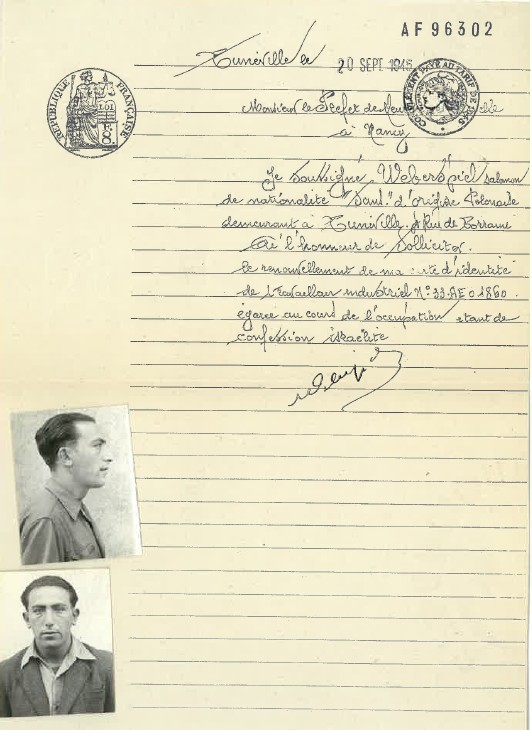 AF 96302
Lunéville le 20 SEPT 1945
RÉPUBLIQUE FRANÇAISE
LOI
COMPLÉMENT PAYÉ AU TARIF DE 1945
Monsieur le Préfet de
à Nancy
Je soussigné Weberspiel Salamon
de nationalité "Sans" d'origine Polonaise
demeurant à Lunéville Rue de
Ai l'honneur de Solliciter
le renouvellement de ma d'identité
de travailleur industriel N° 33.AE 01860.
égarée au cours de l'occupation étant de
confession israélite